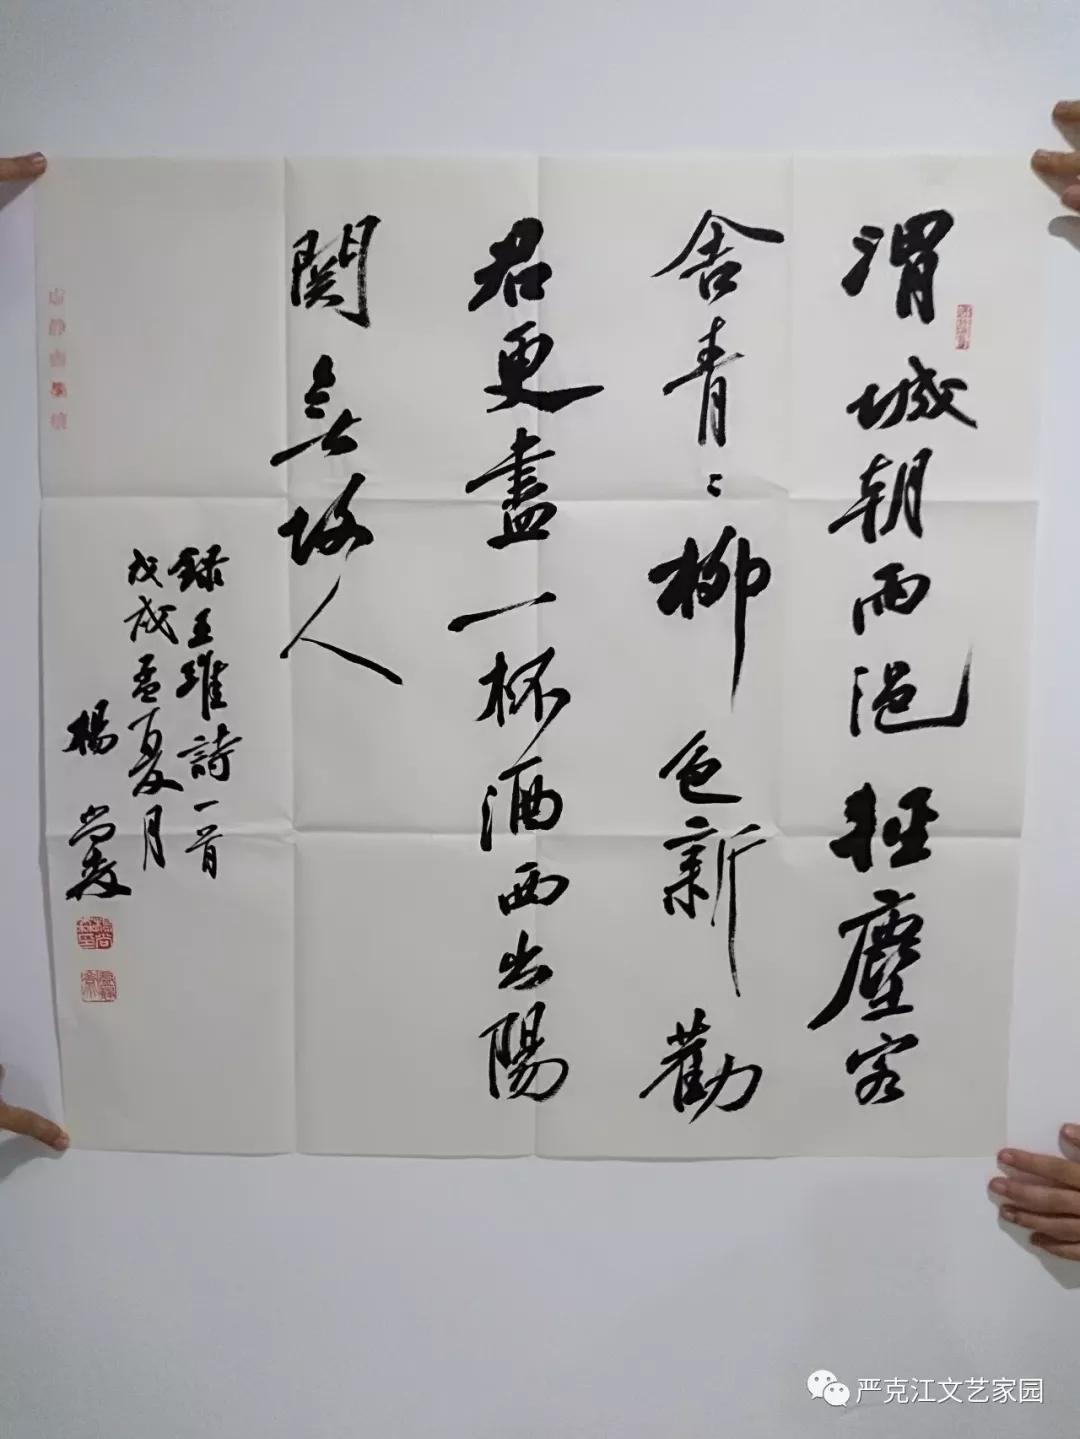 渭城朝雨浥輕塵客
舍青〻柳色新勸
君更盡一杯酒西出陽
関無故人
録王維詩一首
戊戌孟夏月
楊尚
严克江文艺家园